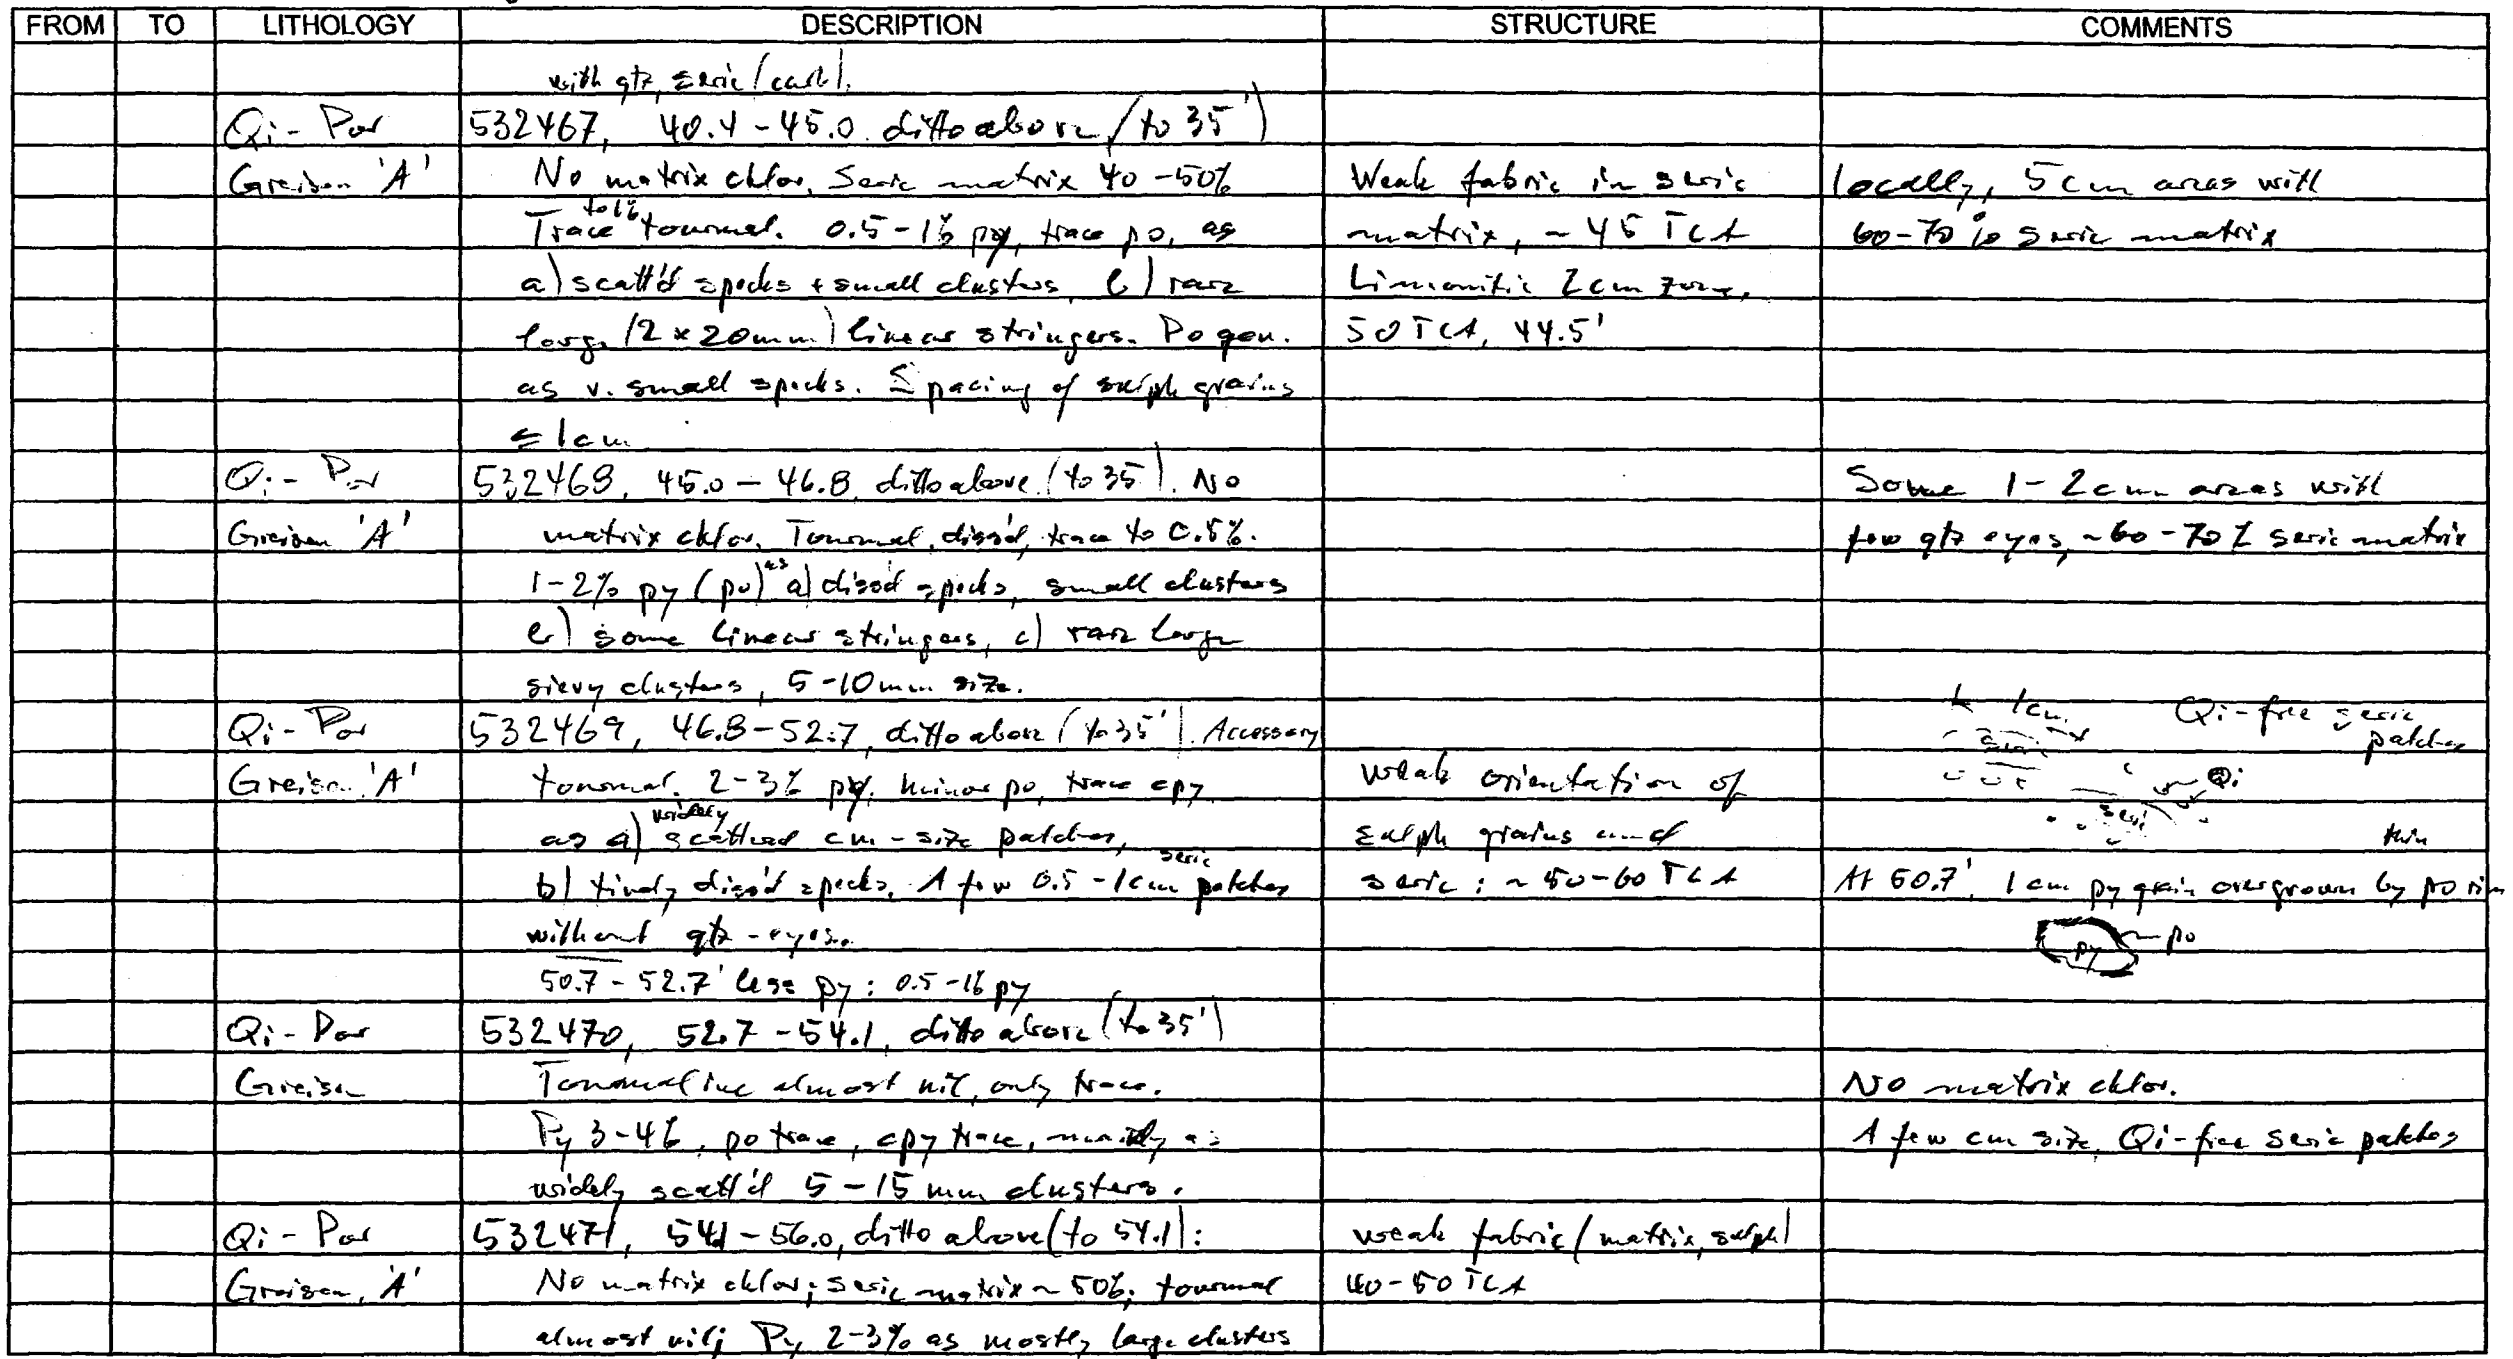 FROM TO LITHOLOGY DESCRIPTION STRUCTURE COMMENTS
with qtz, seric (carb).
Qi - Por 532467, 40.4 - 45.0 ditto above (to 35')
Greisen 'A' No matrix chlor, Seric matrix 40 - 50% Weak fabric in seric locally, 5 cm areas with
Trace to 1% tourmal. 0.5 - 1% py, trace po, as matrix, ~ 45 TCA 60 - 70% seric matrix
a) scatt'd specks + small clusters, b) rare Limonitic 2 cm zone,
large (2 x 20mm) linear stringers. Po gen. 50 TCA, 44.5'
as v. small specks. Spacing of sulph grains
≤ 1cm
Qi - Por 532468, 45.0 - 46.8, ditto above (to 35'). No Some 1 - 2 cm areas with
Greisen 'A' matrix chlor. Tourmal, diss'd, trace to 0.5%. few qtz eyes, ~ 60 - 70% seric matrix
1 - 2% py (po) as a) diss'd specks, small clusters
b) some linear stringers, c) rare large
sievy clusters, 5 - 10 mm size.
1cm Qi-free seric patches
Qi - Por 532469, 46.8 - 52.7, ditto above (to 35'). Accessory seric
Greisen 'A' tourmal. 2 - 3% py, minor po, trace cpy weak orientation of Qi
as a) widely scattered cm - size patches, sulph grains and seric
b) finely diss'd specks. A few 0.5 - 1cm seric patches seric : ~ 50-60 TCA At 50.7', 1 cm py grain overgrown by thin po rim
without qtz - eyes. py po
50.7 - 52.7' less py : 0.5 - 1% py
Qi - Por 532470, 52.7 - 54.1, ditto above (to 35')
Greisen Tourmaline almost nil, only trace. No matrix chlor.
Py 3 - 4%, po trace, cpy trace, mainly as A few cm size, Qi-free seric patches
widely scatt'd 5 - 15 mm clusters.
Qi - Por 532471, 54.1 - 56.0, ditto above (to 54.1): weak fabric (matrix, sulph)
Greisen, 'A' No matrix chlor; seric matrix ~ 50%; tourmal 40 - 50 TCA
almost nil; Py 2 - 3% as mostly large clusters